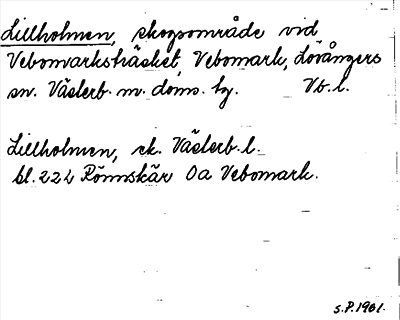 Lillholmen, skogsområde vid
Vebomarksträsket, Vebomark, Lövångers
sn. Västerb. m. doms. hg. Vb. l.
Lillholmen, ek. Västerb. l.
bl. 222 Rönnskär Oa Vebomark.
S.P. 1961.